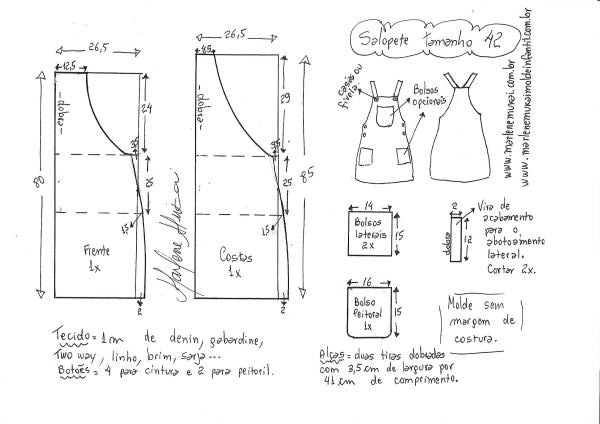 Salopete tamanho 42
www.marlenemukai.com.br
www.marlenemukaimoldeinfantil.com.br
26,5
12,5
-dobra-
24
3,5
25
88
1,5
Frente
1x
2
26,5
8,5
-dobra-
29
3,5
25
85
1,5
Costas
1x
2
Marlene Mukai
casas ou
fivela
Bolsos
opcionais
14
Bolsos
laterais
2x
15
2
dobra
12
Vira de
acabamento
para o
abotoamento
lateral.
Cortar 2x.
16
Bolso
peitoral
1x
15
Molde sem
margem de
costura.
Tecido = 1m de denin, gabardine,
Two way, linho, brim, sarja...
Botões = 4 para cintura e 2 para peitoril.
Alças = duas tiras dobradas
com 3,5 cm de largura por
41 cm de comprimento.